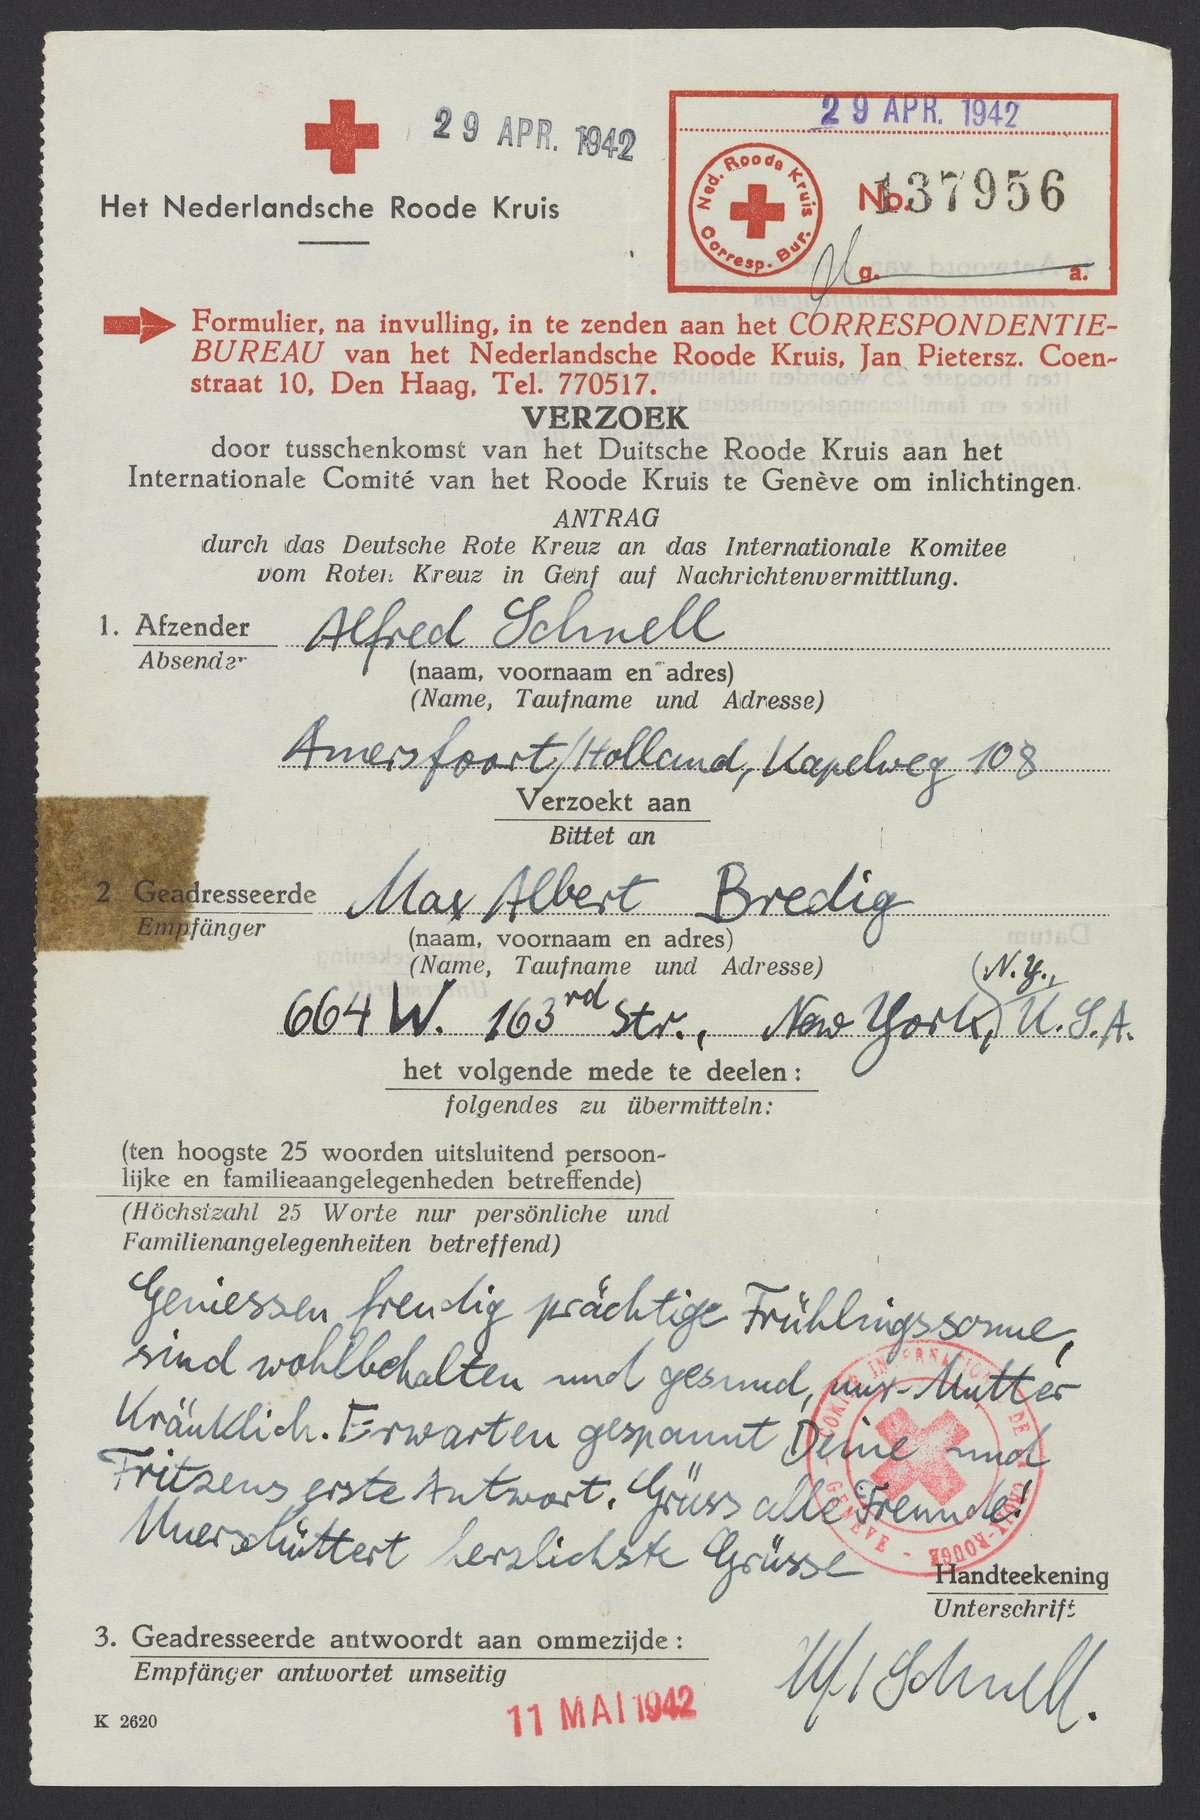 29 APR. 1942
29 APR. 1942
Het Nederlandsche Roode Kruis
Ned. Roode Kruis
Corresp. Bur.
No. 137956
g. a.
Formulier, na invulling, in te zenden aan het CORRESPONDENTIE-
BUREAU van het Nederlandsche Roode Kruis, Jan Pietersz. Coen-
straat 10, Den Haag, Tel. 770517.
VERZOEK
door tusschenkomst van het Duitsche Roode Kruis aan het
Internationale Comité van het Roode Kruis te Genève om inlichtingen.
ANTRAG
durch das Deutsche Rote Kreuz an das Internationale Komitee
vom Roten Kreuz in Genf auf Nachrichtenvermittlung.
1. Afzender Alfred Schnell
Absender
(naam, voornaam en adres)
(Name, Taufname und Adresse)
Amersfoort/Holland, Kapelweg 108
Verzoekt aan
Bittet an
2 Geadresseerde Max Albert Bredig
Empfänger
(naam, voornaam en adres)
(Name, Taufname und Adresse)
(N.Y.,
664 W. 163rd Str., New York,) U.S.A.
het volgende mede te deelen:
folgendes zu übermitteln:
(ten hoogste 25 woorden uitsluitend persoon-
lijke en familieaangelegenheden betreffende)
(Höchstzahl 25 Worte nur persönliche und
Familienangelegenheiten betreffend)
Geniessen freudig prächtige Frühlingssonne,
sind wohlbehalten und gesund, nur Mutter
Kränklich. Erwarten gespannt Deine und
Fritzens erste Antwort. Grüss alle Freunde!
Unerschüttert herzlichste Grüsse
COMITÉ INTERNATIONAL DE LA CROIX-ROUGE - GENÈVE -
Handteekening
Unterschrift
3. Geadresseerde antwoordt aan ommezijde:
Empfänger antwortet umseitig
Schnell.
11 MAI 1942
K 2620